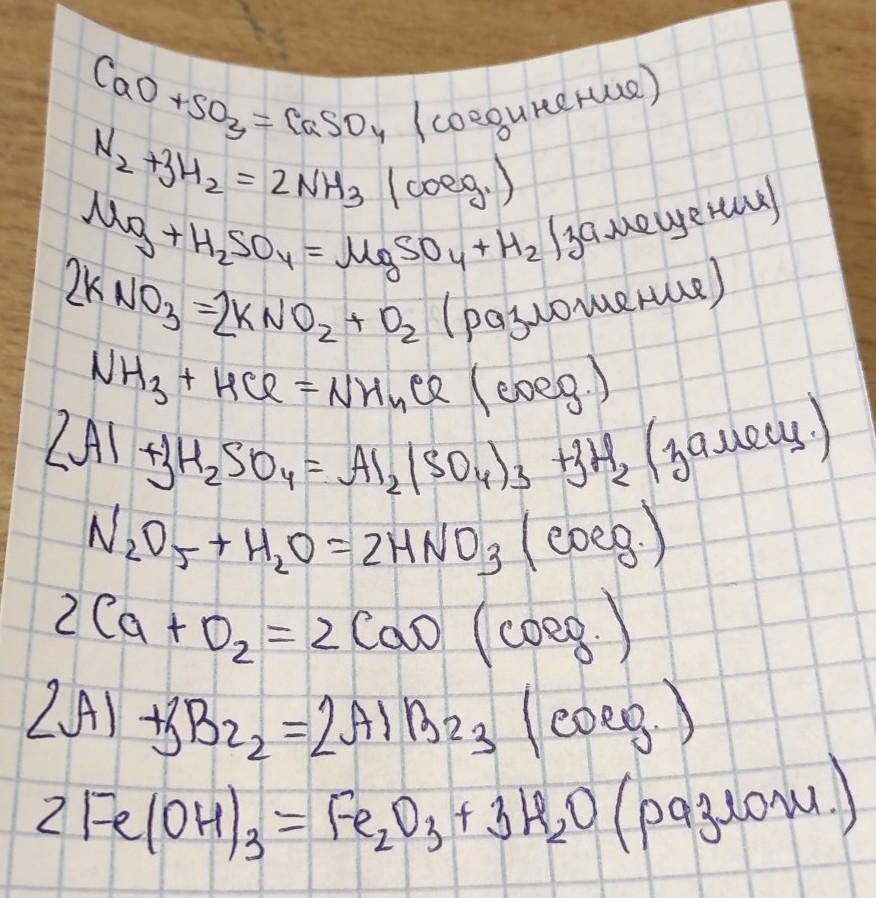 CaO + SO₃ = CaSO₄ (соединение)
N₂ + 3H₂ = 2NH₃ (соед.)
Mg + H₂SO₄ = MgSO₄ + H₂ (замещение)
2KNO₃ = 2KNO₂ + O₂ (разложение)
NH₃ + HCl = NH₄Cl (соед.)
2Al + 3H₂SO₄ = Al₂(SO₄)₃ + 3H₂ (замещ.)
N₂O₅ + H₂O = 2HNO₃ (соед.)
2Ca + O₂ = 2CaO (соед.)
2Al + 3Br₂ = 2AlBr₃ (соед.)
2Fe(OH)₃ = Fe₂O₃ + 3H₂O (разлож.)